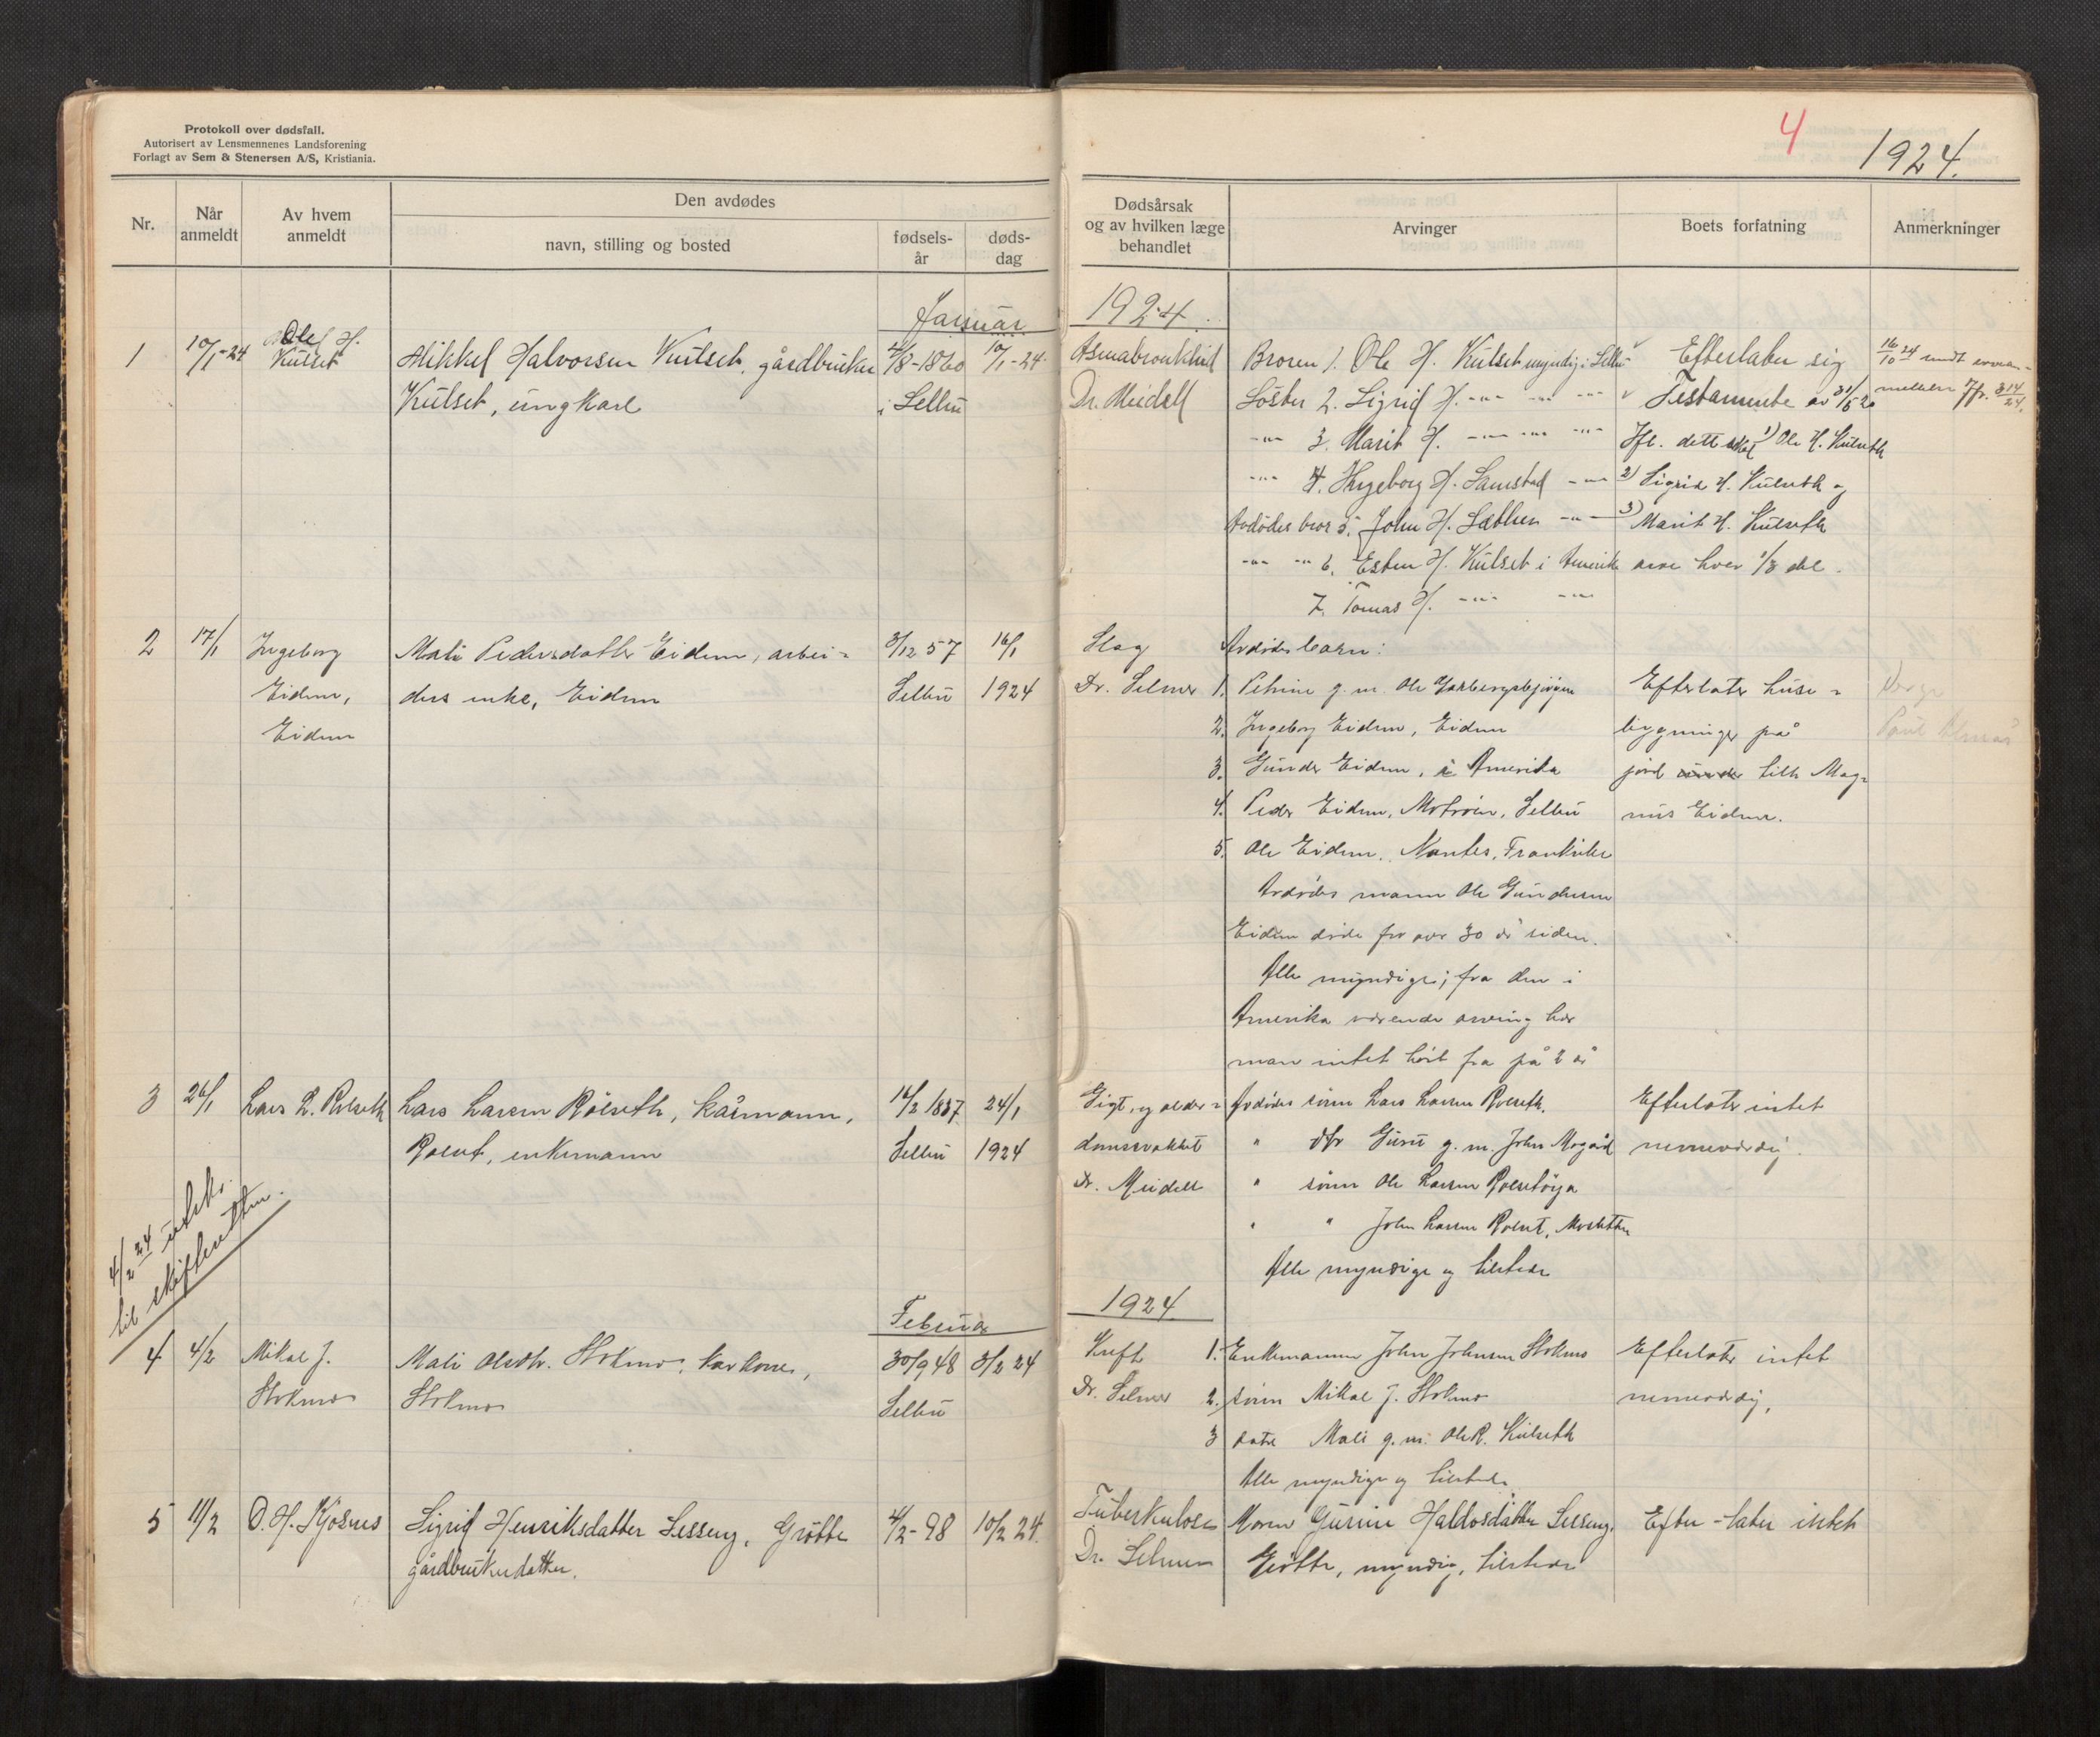 Protokoll over dødsfall.
Autorisert av Lensmennenes Landsforening
Forlagt av Sem & Stenersen A/S, Kristiania.
Nr.
Når anmeldt
Av hvem anmeldt
Den avdødes
navn, stilling og bosted
fødsels-år
døds-dag
Januar
1
10/1-24
Ole H.
Kulset
Mikkel Halvorsen Kulset, gårdbruker
Kulset, ungkarl
/8-1860
i Selbu
10/1-24
2
17/1
Ingeborg
Eidem,
Eidem
Mali Pedersdatter Eidem, arbei-
ders enke, Eidem
3/12 57
Selbu
16/1
1924
3
26/1
Lars L. Rolseth
Lars Larsen Rolseth, kårmann,
Rolset, enkemann
14/2 1837
Selbu
24/1
1924
4/2 24 utskr.
til skifteretten.
Februar
4
4/2
Mikal J.
Stokmo
Mali Olsdtr. Stokmo, karkone,
Stokmo
30/9 48
Selbu
3/2 24
5
11/2
O. H. Kjøsnes
Sigrid Henriksdatter Lesseng, Grøtte
gårdbrukerdatter.
4/2-98
10/2 24.
4
1924.
Dødsårsak
og av hvilken læge
behandlet
Arvinger
Boets forfatning
Anmerkninger
1924.
Dr. Meidell
Broren 1. Ole H. Kulset myndig i Selbu
Søster 2. Sigrid H. -"- -"- -"-
-"- 3. Marit H. -"- -"- -"-
-"- 4. Ingeborg H. Samstad -"-
Avdødes bror 5. John H. Sæther -"-
-"- -"- 6. Esten H. Kulset i Amerika
7. Tomas H. -"- -"-
Efterlater sig
Testamente av 31/5 20
Jfl. dette skal 1) Ole H. Kulseth
2) Sigrid H. Kulseth og
3) Marit H. Kulseth
arve hver 1/3 del.
16/10 24 sendt
Jfr. 314/24.
Slag
Dr. Selmer
Avdødes barn:
1. Petrine g.m. Ole
2. Ingeborg Eidem, Eidem
3. Gunder Eidem, i Amerika
4. Peder Eidem, Motrøen, Selbu
5. Ole Eidem, Nantes, Frankrike
Avdødes mann Ole Gundersen
Eidem døde for over 30 år siden.
Alle myndige; fra den i
Amerika værende arving har
man intet hørt fra på 2 år
Efterlater huse-
bygninger på
jord under tilh. Mag-
nus Eidem.
Verge
Paul
Gigt, og alder-
domssvakhet
Dr. Meidell
Avdødes sønn Lars Larsen Rolseth.
" dtr Guru g.m. John Mogård
" sønn Ole Larsen Rolsetøya
" " John Larsen Rolset, Mosletten
Alle myndige og tilstede
Efterlater intet
nevneværdig.
1924
Kreft
Dr. Selmer
1. Enkemannen John Johnsen Stokmo
2. sønn Mikal J. Stokmo
3 datr Mali g.m. Ole R. Kulseth
Alle myndige og tilstede
Efterlater intet
nevneværdig,
Tuberkulose
Dr. Selmer
Moren Gurine Haldosdatter Lesseng,
Grøtte, myndig, tilstede
Efter-later intet